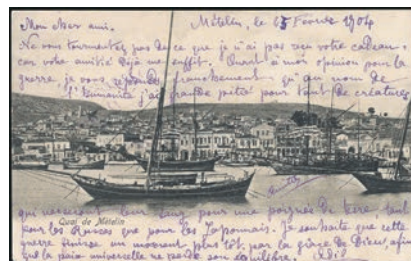 Mon cher ami. Métélin, le 25 Février 1904
Ne vous tourmentez pas de ce que je n'ai pas reçu votre cadeau.
car votre amitié déjà me suffit. Quant à mon opinion pour la
guerre, je vous répondrai franchement qu'au nom de
l'humanité j'ai grande pitié pour tant de créatures
qui verseront leur sang pour une poignée de terre, tant
Quai de Métélin
pour les Russes que pour les Japonnais. Je souhaite que cette
guerre finisse un moment plus tôt, par la grâce de Dieu, afin
que la paix universelle ne perde son équilibre.